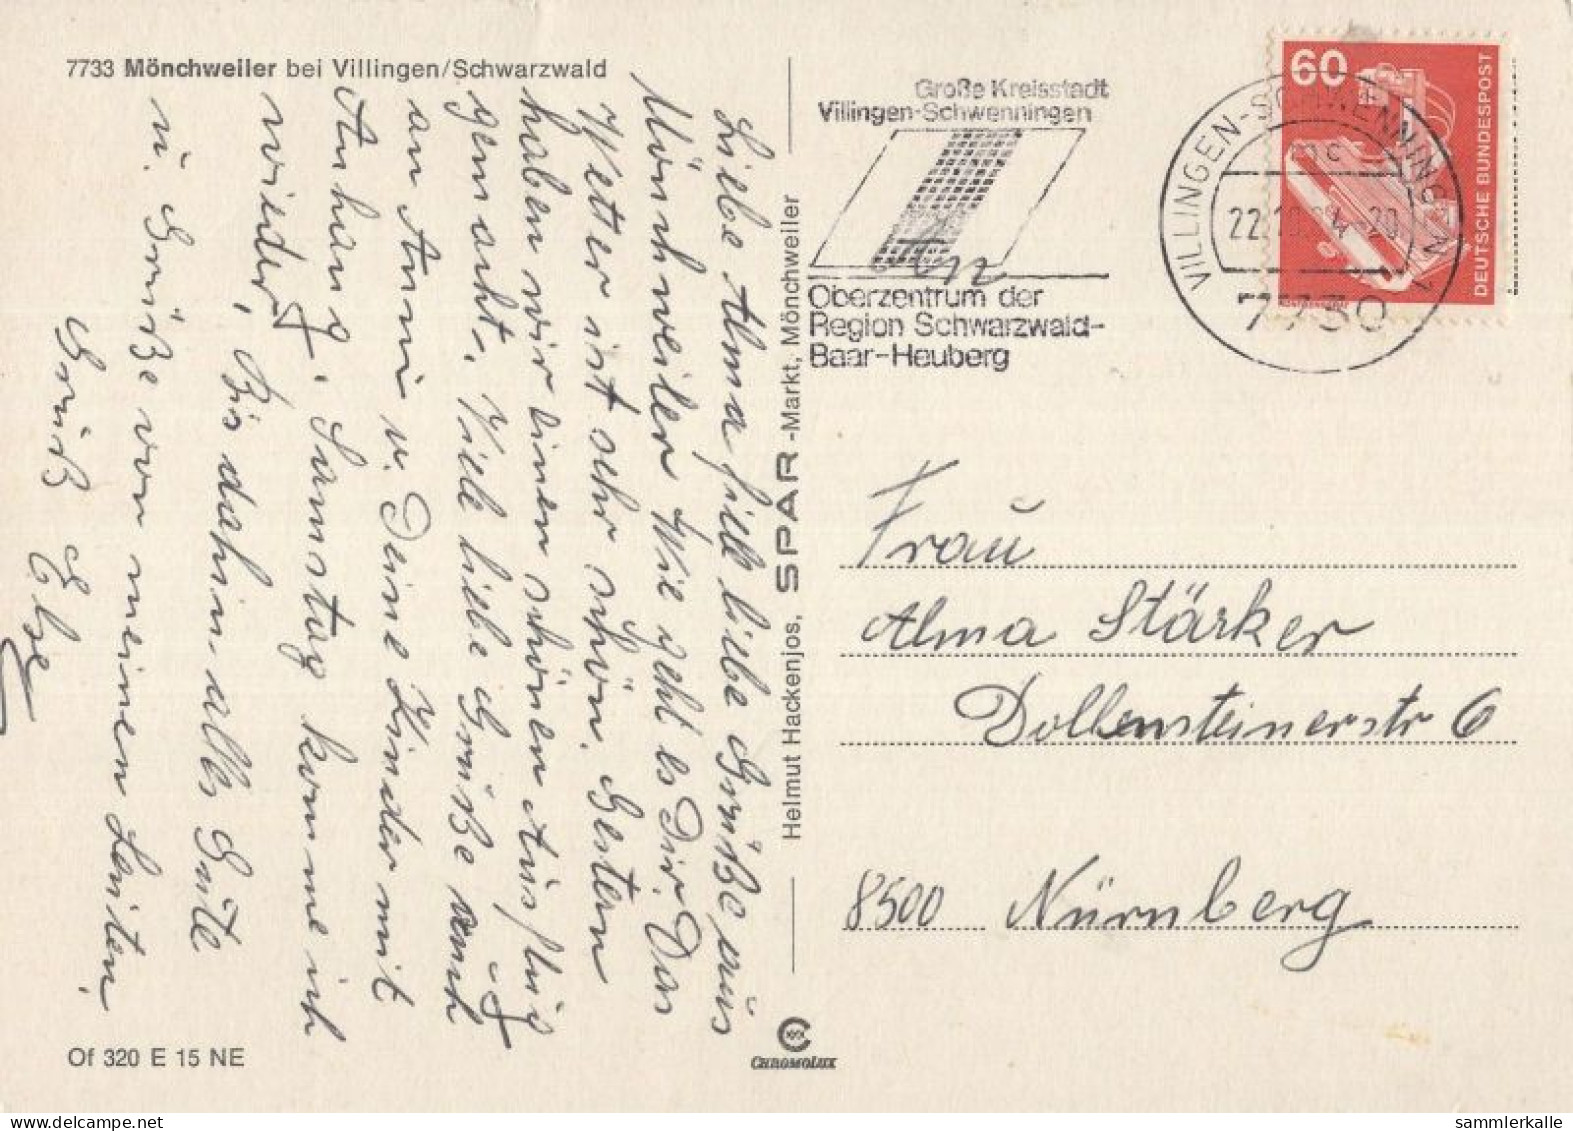 7733 Mönchweiler bei Villingen/Schwarzwald
Liebe Alma! Viele liebe Grüße aus
Mönchweiler. Wie geht es Dir. Das
Wetter ist sehr schön. Gestern
haben wir einen schönen Ausflug
gemacht. Viele liebe Grüße auch
an Anni u. Deine Kinder mit
Anhang. Samstag komme ich
wieder. Bis dahin alles Gute
u. Grüße von meinen Leuten.
Gruß Else
Of 320 E 15 NE
Helmut Hackenjos, SPAR-Markt, Mönchweiler
CHROMOLUX
Große Kreisstadt
Villingen-Schwenningen
Oberzentrum der
Region Schwarzwald-
Baar-Heuberg
VILLINGEN-SCHWENNINGEN 1
mc
22.10.84-20
7730
60
DEUTSCHE BUNDESPOST
Frau
Alma Stärker
Dollnsteinerstr 6
8500 Nürnberg
sammlerkalle
delcampe.net